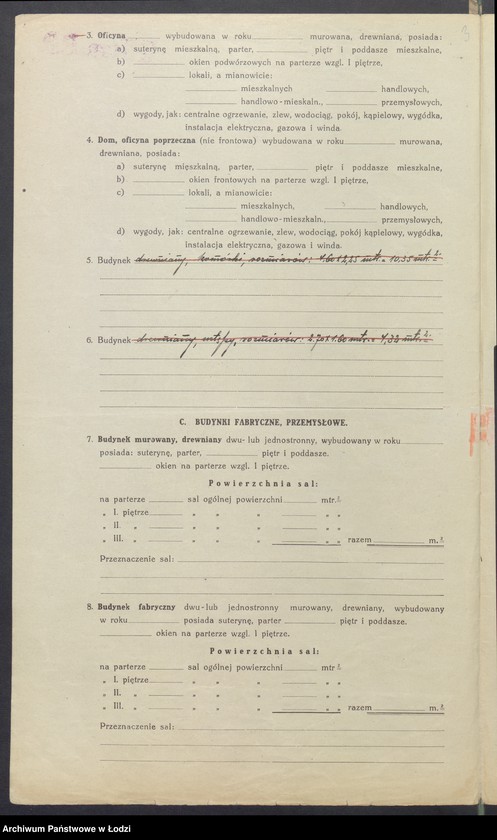 3. Oficyna wybudowana w roku murowana, drewniana, posiada:
a) suterynę mieszkalną, parter, piętr i poddasze mieszkalne,
b) okien podwórzowych na parterze wzgl. I piętrze,
c) lokali, a mianowicie:
mieszkalnych handlowych,
handlowo-mieszkaln., przemysłowych,
d) wygody, jak: centralne ogrzewanie, zlew, wodociąg, pokój, kąpielowy, wygódka,
instalacja elektryczna, gazowa i winda
4. Dom, oficyna poprzeczna (nie frontowa) wybudowana w roku murowana,
drewniana, posiada:
a) suterynę mieszkalną, parter, piętr i poddasze mieszkalne,
b) okien frontowych na parterze wzgl. I piętrze,
c) lokali, a mianowicie:
mieszkalnych, handlowych,
handlowo-mieszkaln., przemysłowych,
d) wygody, jak: centralne ogrzewanie, zlew, wodociąg, pokój kąpielowy, wygódka,
instalacja elektryczna, gazowa i winda.
5. Budynek drewniany, komórki, rozmiarów: 4.60 x 2,25 mtr. = 10,35 mtr. 2.
6. Budynek drewniany, rozmiarów: 2.70 x 1.60 mtr. = 4,32 mtr. 2.
C. BUDYNKI FABRYCZNE, PRZEMYSŁOWE.
7. Budynek murowany, drewniany dwu- lub jednostronny, wybudowany w roku
posiada: suterynę, parter, piętr i poddasze.
okien na parterze wzgl. I piętrze.
Powierzchnia sal:
na parterze sal ogólnej powierzchni mtr.²
„ I. piętrze „ „ „ „ „
„ II. „ „ „ „ „ „
„ III. „ „ „ „ „ „ razem m.²
Przeznaczenie sal:
8. Budynek fabryczny dwu-lub jednostronny murowany, drewniany, wybudowany
w roku posiada suterynę, parter piętr i poddasze.
okien na parterze wzgl. I piętrze.
Powierzchnia sal:
na parterze sal ogólnej powierzchni mtr.²
„ I. piętrze „ „ „ „ „
„ II. „ „ „ „ „ „
„ III. „ „ „ „ „ „ razem m.²
Przeznaczenie sal:
Archiwum Państwowe w Łodzi